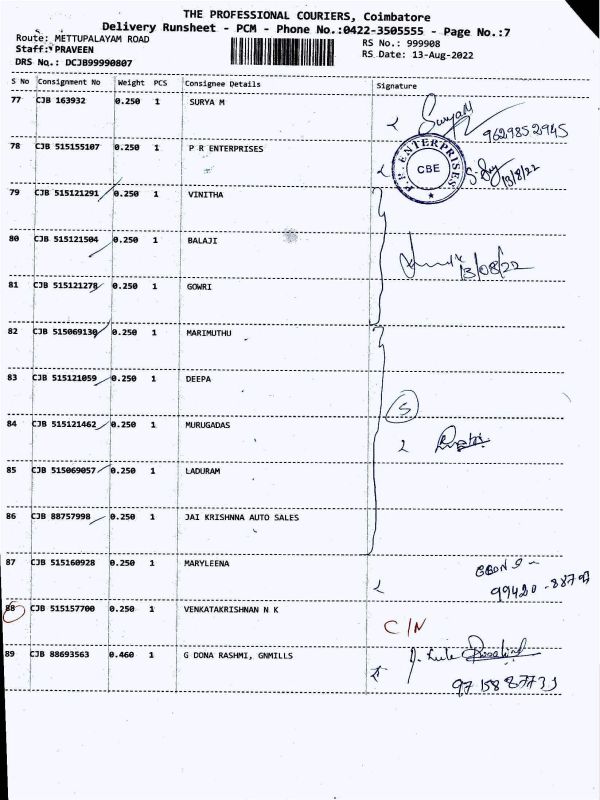 THE PROFESSIONAL COURIERS, Coimbatore
Delivery Runsheet - PCM - Phone No.:0422-3505555 - Page No.:7
Route: METTUPALAYAM ROAD
RS No.: 999908
Staff: PRAVEEN
RS Date: 13-Aug-2022
DRS No.: DCJB99990807
S No Consignment No Weight PCS Consignee Details Signature
77 CJB 163932 0.250 1 SURYA M
Surya M
9629852945
78 CJB 515155107 0.250 1 P R ENTERPRISES
P.R. ENTERPRISES
CBE
13/8/22
79 CJB 515121291 0.250 1 VINITHA
80 CJB 515121504 0.250 1 BALAJI
13/08/22
81 CJB 515121278 0.250 1 GOWRI
82 CJB 515069130 0.250 1 MARIMUTHU
83 CJB 515121059 0.250 1 DEEPA
5
84 CJB 515121462 0.250 1 MURUGADAS
85 CJB 515069057 0.250 1 LADURAM
86 CJB 88757998 0.250 1 JAI KRISHNNA AUTO SALES
87 CJB 515160928 0.250 1 MARYLEENA
88 CJB 515157700 0.250 1 VENKATAKRISHNAN N K
C/N
89 CJB 88693563 0.460 1 G DONA RASHMI, GNMILLS